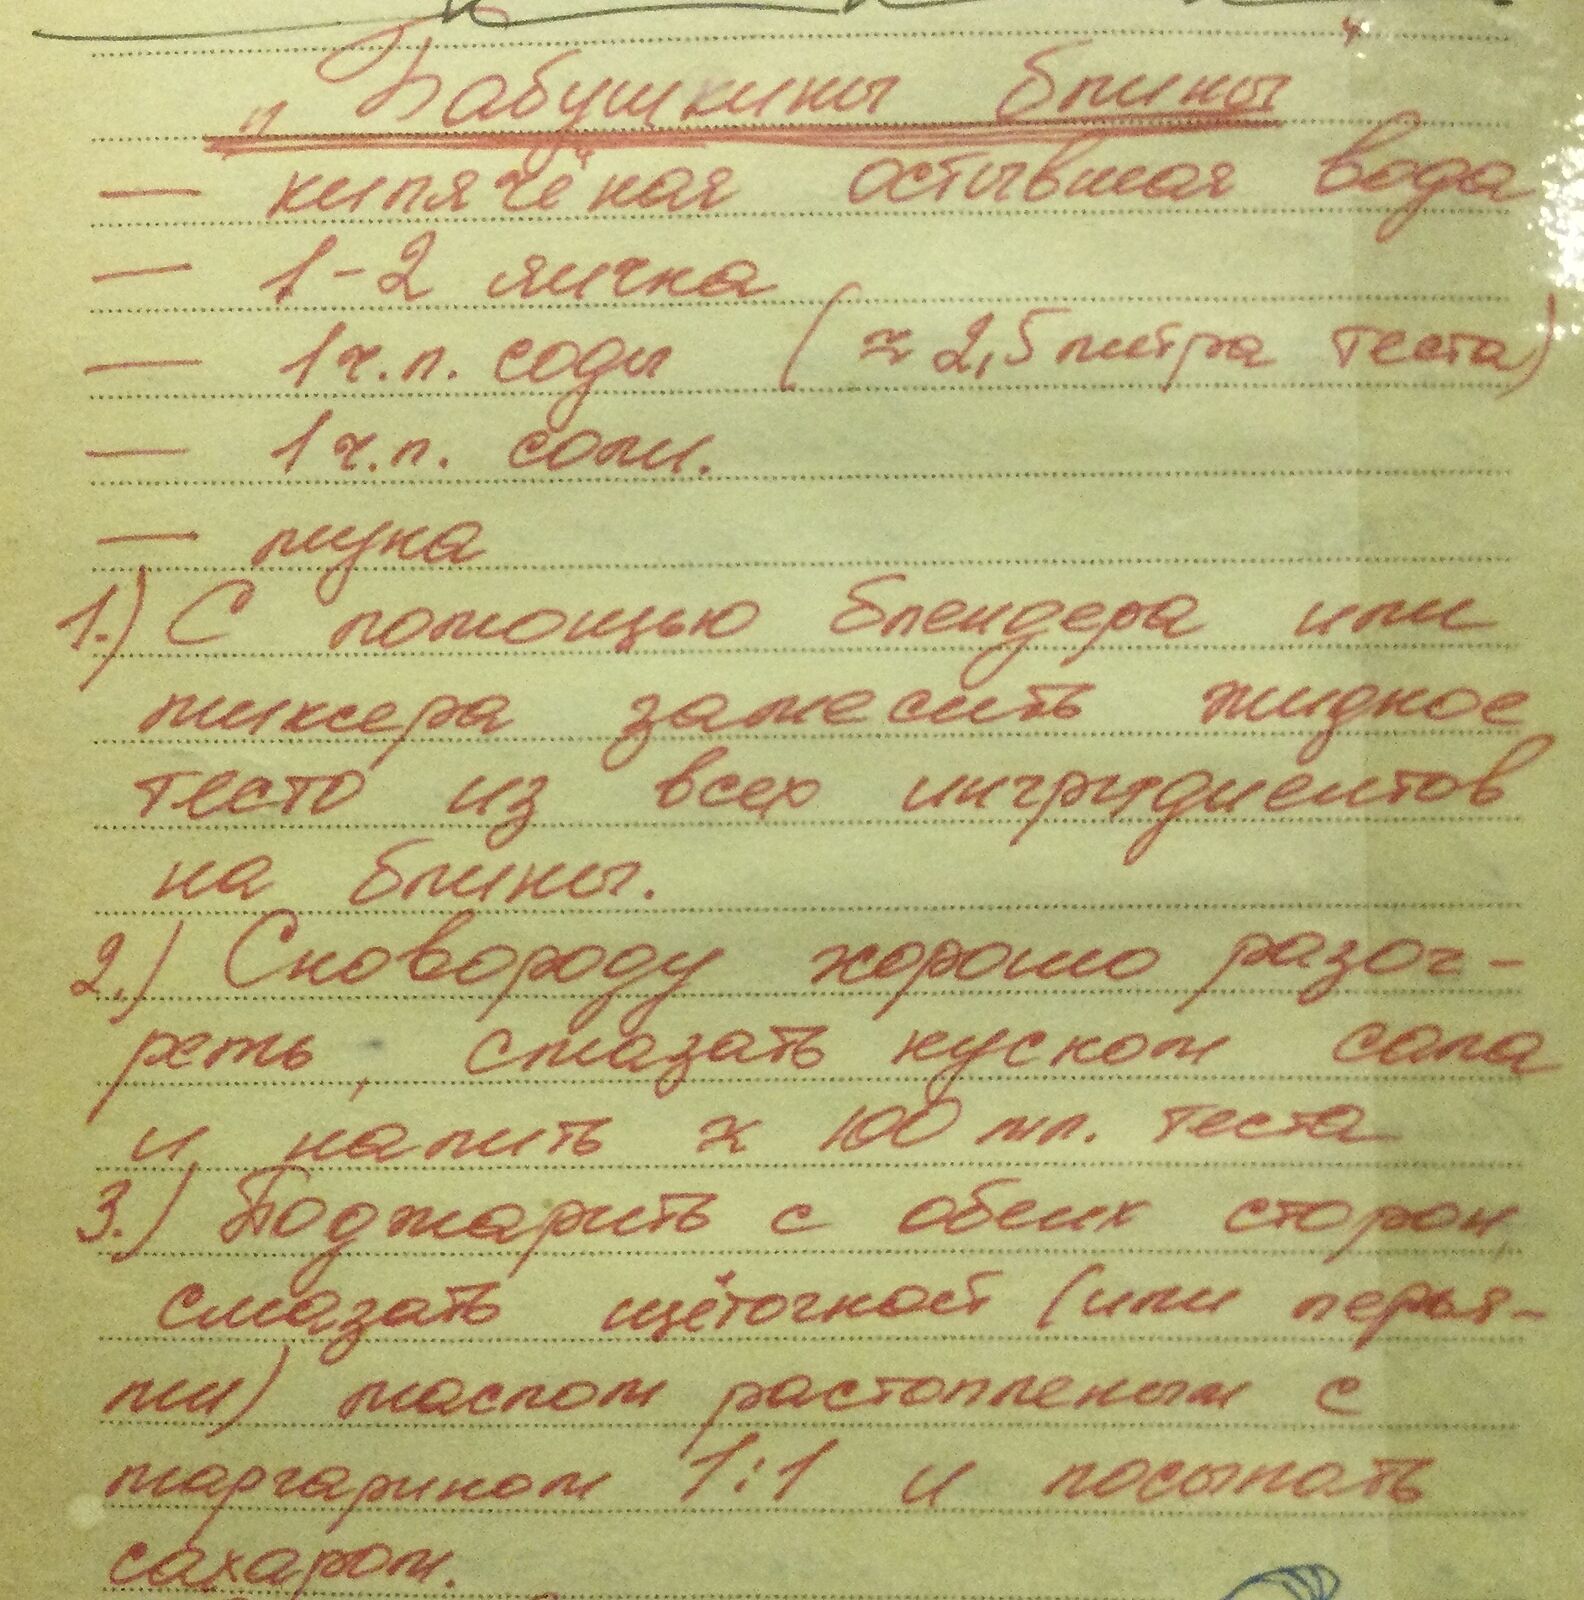 „Бабушкины блины"
— кипячёная остывшая вода
— 1-2 яичка
— 1 ч.л. соды (≈ 2,5 литра теста)
— 1 ч.л. соли.
— мука
1.) С помощью блендера или
миксера замесить жидкое
тесто из всех ингридиентов
на блины.
2.) Сковороду хорошо разог-
реть, смазать куском сала
и налить ≈ 100 мл. теста
3.) Поджарить с обеих сторон,
смазать щёточкой (или перья-
ми) маслом растопленым с
маргарином 1:1 и посыпать
сахаром.